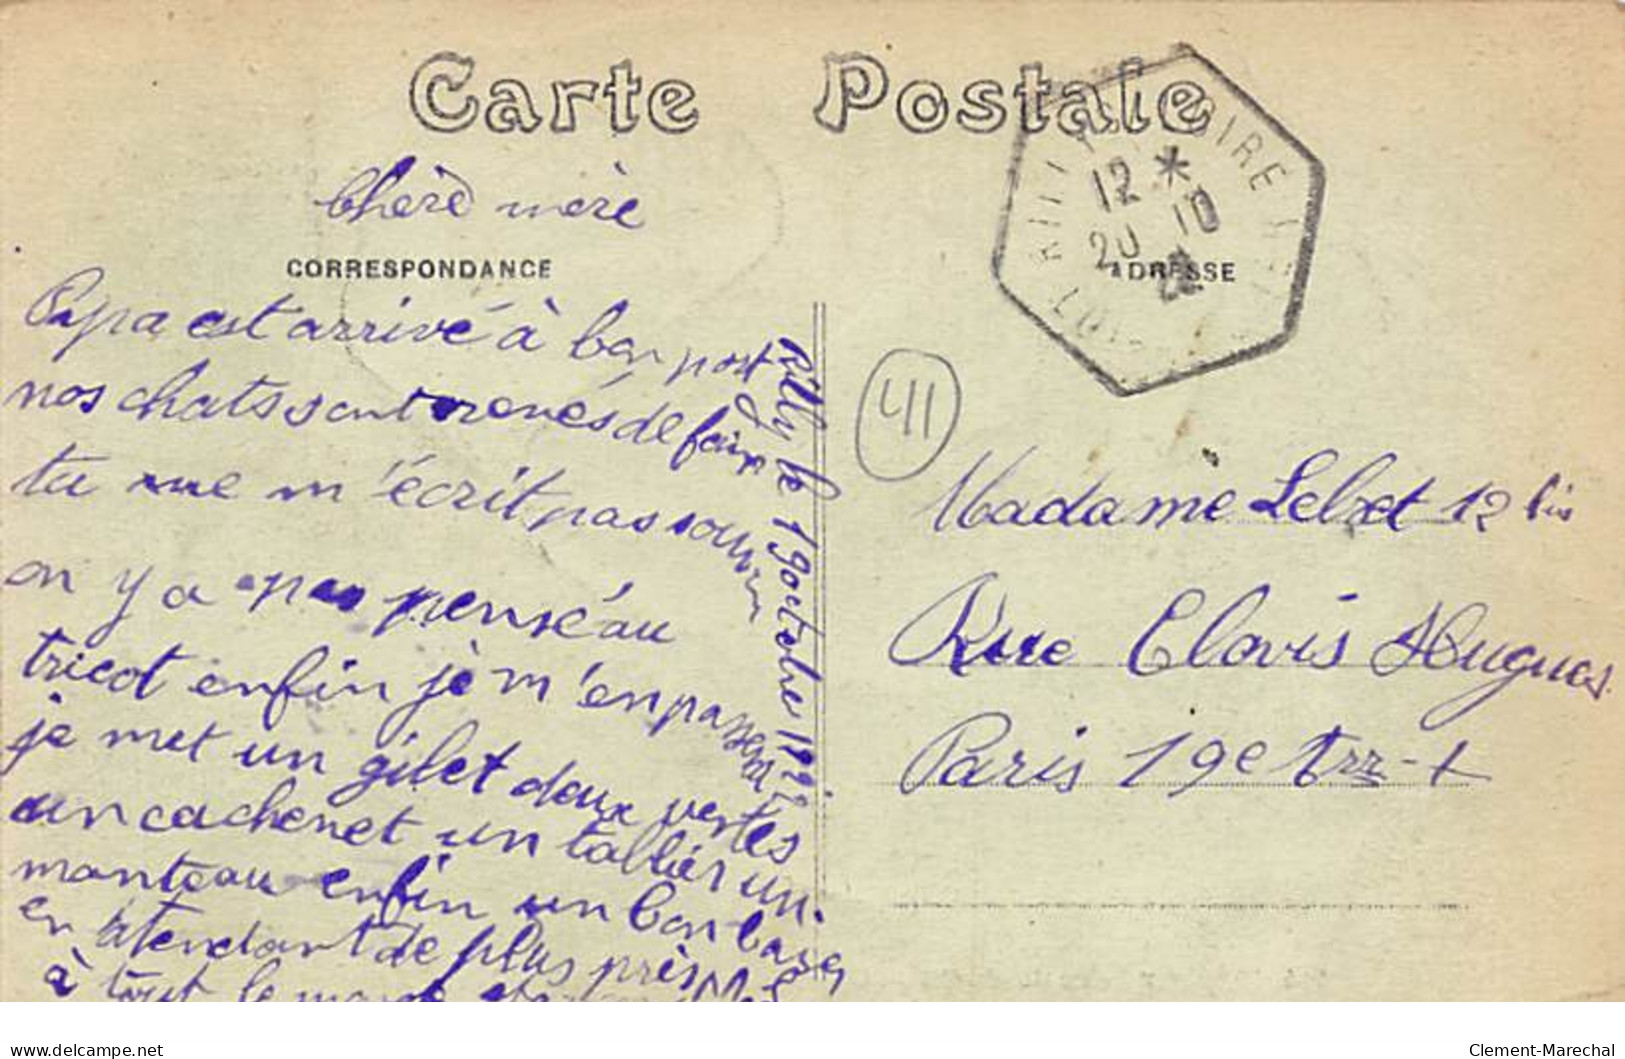 Carte Postale
Chère mère
CORRESPONDANCE
Papa est arrivé à bon port
nos chats sont crevés de faim
tu me m'écrit pas souvin
on y a pas pensé au
tricot enfin je m'en passerai
je met un gilet doux vertes
un cachenet un tablier un
manteau enfin un bon baiser
en attendant de plus près
à tout le monde
Rilly le 19 octobre 192
RILLY LOIRE LOIR
12 *
20 10
ADRESSE
411
Madame Lebret 12 bis
Rue Clovis Hugues
Paris 19e Arr-t
www.delcampe.net
Clement-Marechal